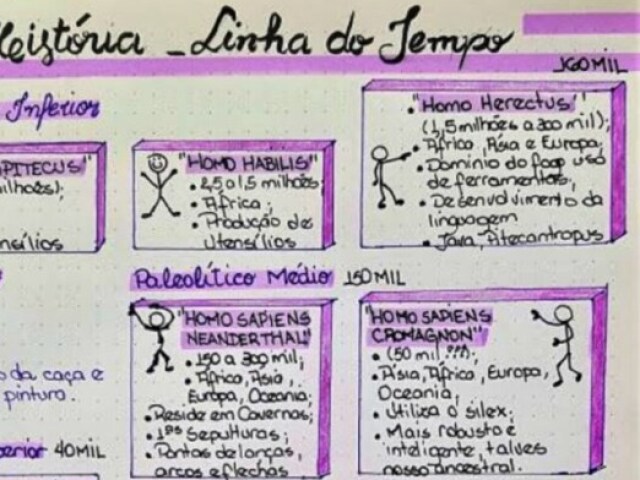 Heistória - Linha do Tempo
160 MIL
Inferior
OPITECUS"
milhões);
nsílios
"HOMO HABILIS"
• 2,5 a 1,5 milhões;
• África;
• Produção de
utensílios
• "Homo Herectus"
(1,5 milhões a 300 mil);
• África, Ásia e Europa;
• Domínio do fogo, uso
de ferramentas;
• Desenvolvimento da
linguagem
• Java, Pitecantropus
Paleolítico Médio 150 MIL
"HOMO SAPIENS
NEANDERTHAL"
• 150 a 300 mil;
• África, Ásia,
Europa, Oceania;
• Reside em Cavernas;
• 1ªs Sepulturas;
• Pontas de lanças,
arcos e flechas
"HOMO SAPIENS
CROMAGNON"
• (50 mil ???);
• Ásia, África, Europa,
Oceania;
• Utiliza o silex;
• Mais robusto e
inteligente, talves
nosso ancestral.
o da caça e
pintura.
perior 40 MIL